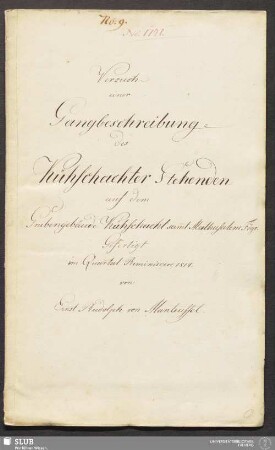 No. 9.
Versuch
einer
Gangbeschreibung
des
Kuhschachter Stehenden
auf dem
Grubengebäude Kuhschacht samt Methusalem Fdgr.
Gefertigt
im Quartal Reminiscere
von
Ernst Rudolph von Manteuffel.
SLUB
Wir führen Wissen.